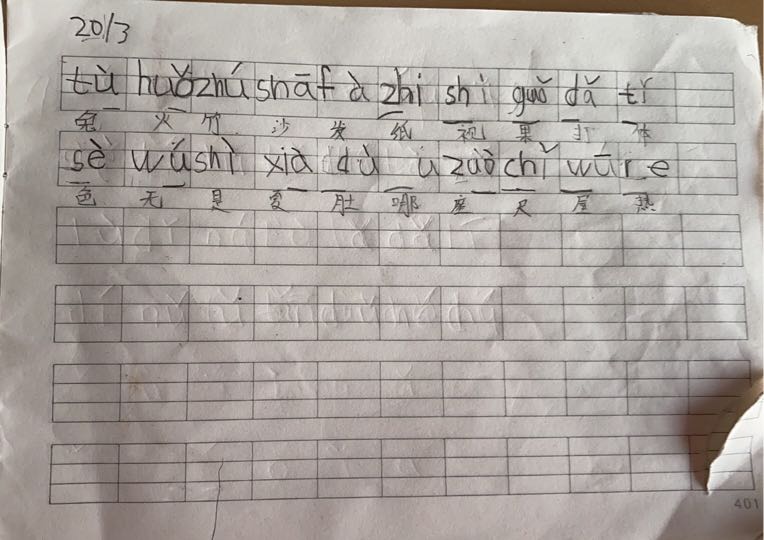 20/3
tù huǒ zhú shā f à zhi shi guǒ dǎ tǐ
兔 火 竹 沙 发 纸 视 果 打 体
sè wú shì xià dù ù zuò chǐ wū r e
色 无 是 夏 肚 哪 座 尺 屋 热
401